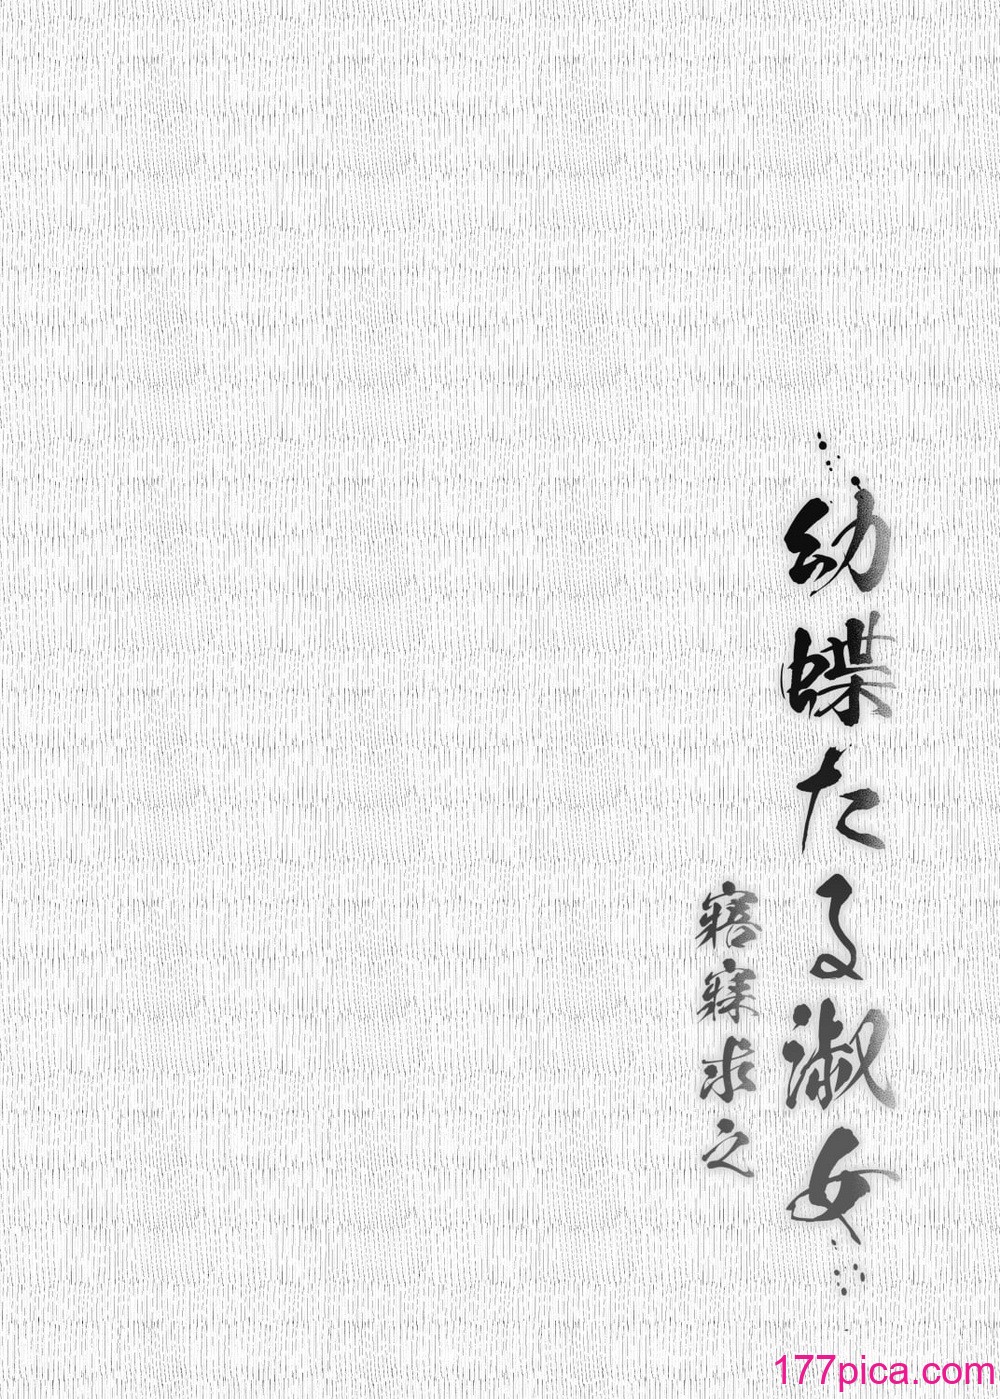 幼蝶たる淑女
寤寐求之
177pica.com